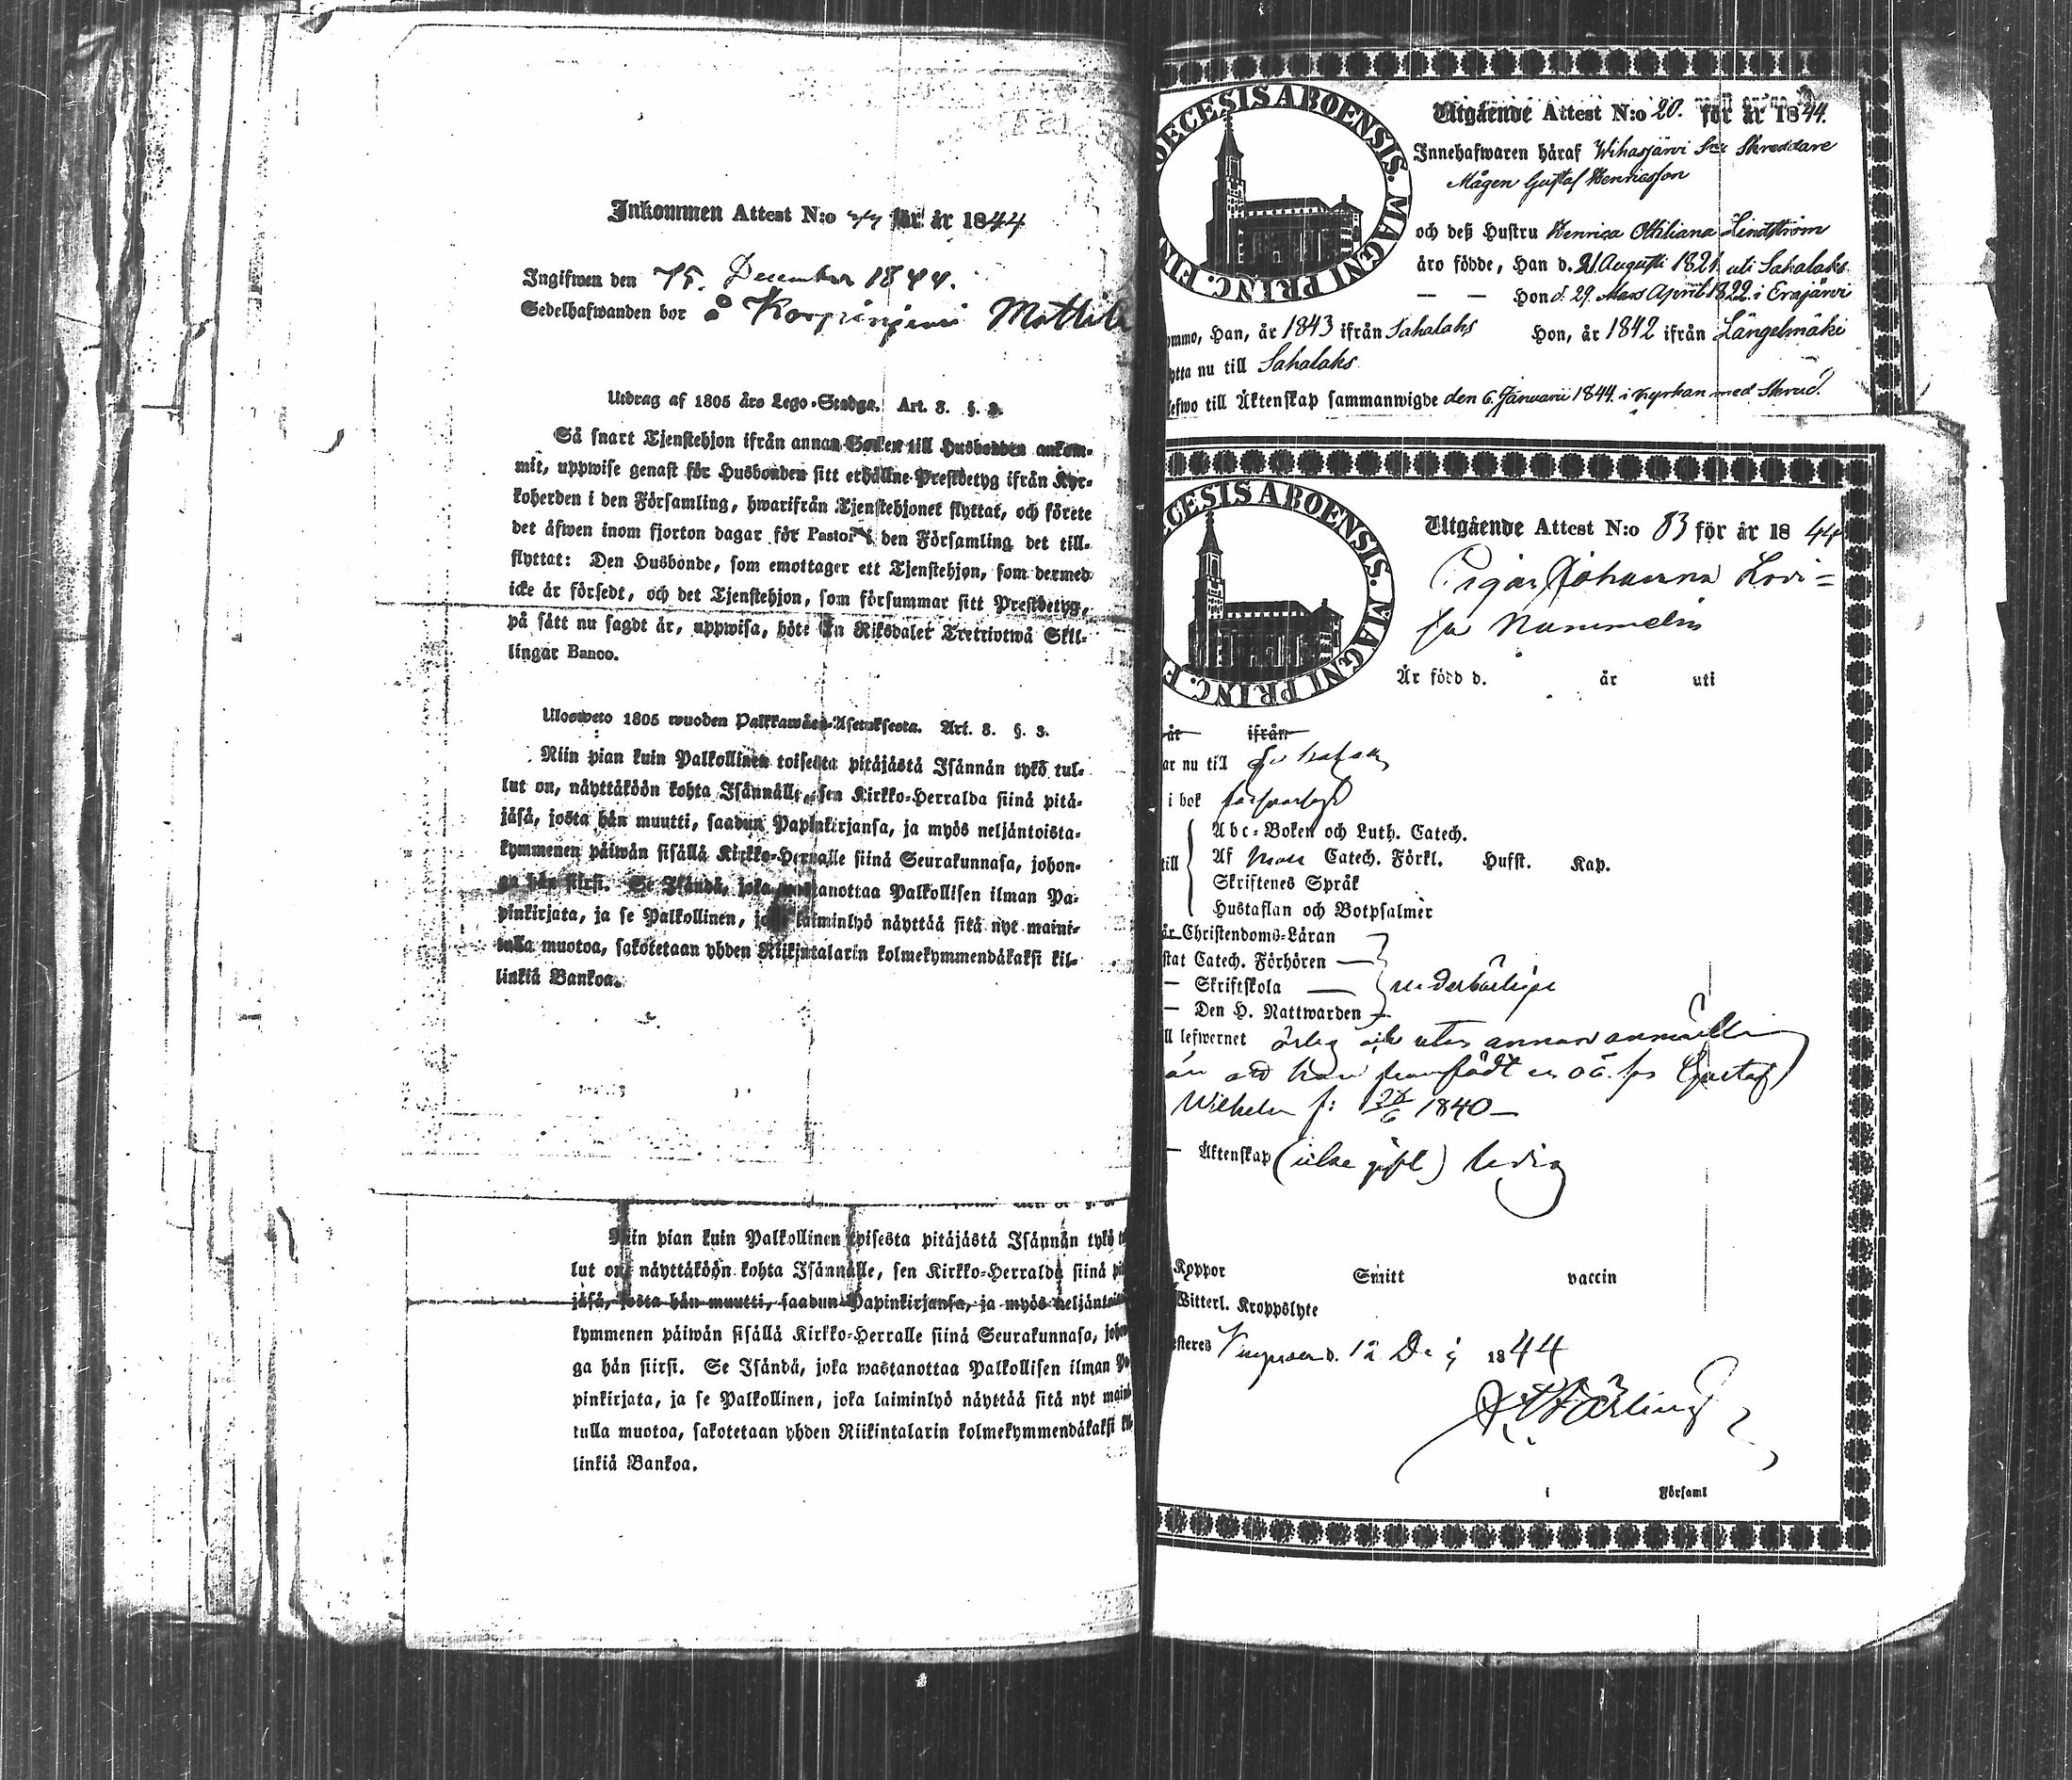 Inkommen Attest N:o 44 för år 1844
Ingifwen den 15. December 1844.
Sedelhafwanden bor å
Utdrag af 1805 års Lego-Stadga. Art. 8. §. 3.
Så snart Tjenstehjon ifrån annan Socken till Husbonden ankom-
mit, uppwise genast för Husbonden sitt erhållne Prestbetyg ifrån Kyr-
koherden i den Församling, hwarifrån Tjenstehjonet flyttat, och förete
det äfwen inom fjorton dagar för Pastor i den Församling det till-
flyttat: Den Husbonde, som emottager ett Tjenstehjon, som dermed
icke är försedt, och det Tjenstehjon, som försummar sitt Prestbetyg,
på sätt nu sagdt är, uppwisa, böte En Riksdaler Tretriotwå Skil-
lingar Banco.
Ulosweto 1805 wuoden Palkkawäen-Asetuksesta. Art. 8. §. 3.
Niin pian kuin Palkollinen toisesta pitäjästä Isännän tykö tul-
lut on, näyttäköön kohta Isännälle, sen Kirkko-Herralda siinä pitä-
jäsä, josta hän muutti, saadun Papinkirjansa, ja myös neljäntoista-
kymmenen päiwän sisällä Kirkko-Herralle siinä Seurakunnasa, johon-
ga hän siirsi. Se Isändä, joka wastanottaa Palkollisen ilman Pa-
pinkirjata, ja se Palkollinen, joka laiminlyö näyttää sitä nyt maini-
tulla muotoa, sakotetaan yhden Riikintalarin kolmekymmendäkaksi kil-
linkiä Bankoa.
Niin pian kuin Palkollinen toisesta pitäjästä Isännän tykö
lut on, näyttäköön kohta Isännälle, sen Kirkko-Herralda siinä
jäsä, josta hän muutti, saadun Papinkirjansa, ja myös
kymmenen päiwän sisällä Kirkko-Herralle siinä Seurakunnasa,
ga hän siirsi. Se Isändä, joka wastanottaa Palkollisen ilman
pinkirjata, ja se Palkollinen, joka laiminlyö näyttää sitä nyt
tulla muotoa, sakotetaan yhden Riikintalarin kolmekymmendäkaksi
linkiä Bankoa.
OECESIS ABOENSIS. MAGNI PRINC. FIN
Utgående Attest N:o 20. för år 1844.
Innehafwaren häraf Wihasjärvi Skreddare
Mågen Gustaf Henricsson
och deß Hustru Henrica Ottiliana Lindström
äro födde, Han d. 21 Augusti 1821 uti Sahalaks
— — Hon d. 29. Mars April 1822 i Eräjärvi
ommo, Han, år 1843 ifrån Sahalaks Hon, år 1842 ifrån Längelmäki
ytta nu till Sahalaks
lefwo till Äktenskap sammanwigde den 6. Januarii 1844. i Kyrkan med Skrud.
ECESIS ABOENSIS. MAGNI PRINC. F
Utgående Attest N:o 83 för år 1844
Pigan Johanna Lovi=
sa Nummelin
Är född d. år uti
år ifrån
ar nu till
i bok försvarligt
Abc-Boken och Luth. Catech.
till Af Catech. Förkl. Hufst. Kap.
Skriftenes Språk
Hustaflan och Botpsalmer
är Christendoms-Läran
stat Catech. Förhören —
— Skriftskola —
— Den H. Nattwarden —
ll lefwernet ärlig utan annan anmälla
än att hon framfödt en o ä. son Gustaf
Wilhelm f: 1840 —
— Äktenskap (icke gift) ledig
Koppor Smitt vaccin
Witterl. Kroppslyte
esteres d. 12 1844
i Församl